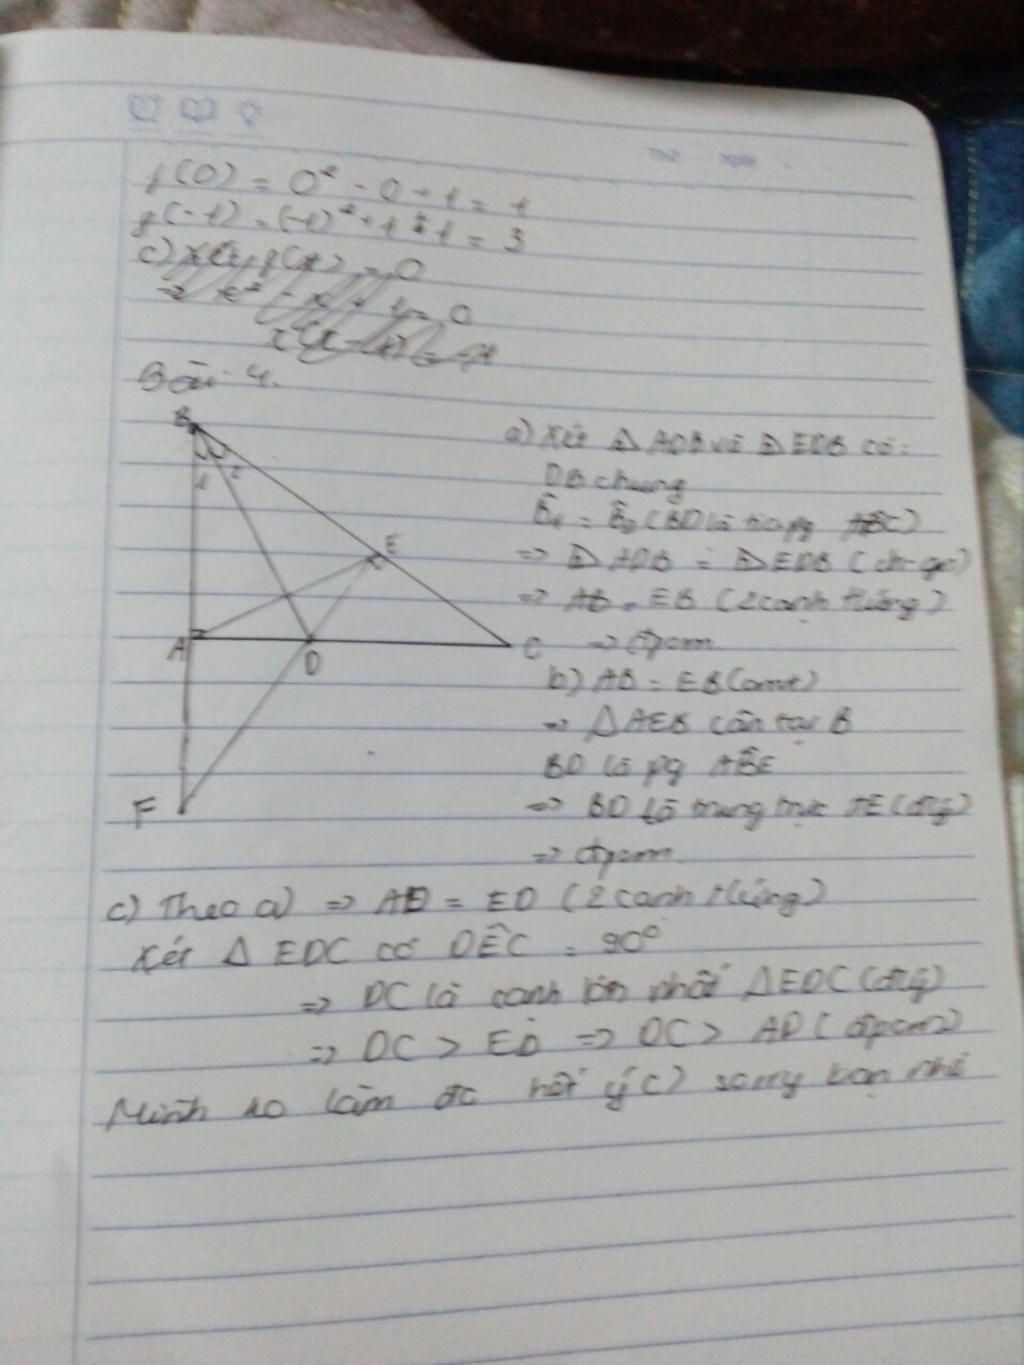 Thứ Ngày
f(0) = 0² - 0 + 1 = 1
g(-1) = (-1)² + 1 + 1 = 3
c)
Bài 4.
B
1 2
E
A D C
F
a) Xét Δ ADB và Δ EDB có:
DB chung
B̂₁ = B̂₂ (BD là tia pg ABC)
=> Δ ADB = Δ EDB (ch-gn)
=> AB = EB (2 cạnh t/ứng)
=> đpcm.
b) AB = EB (cmt)
=> Δ AEB cân tại B
BD là pg ABE
=> BD là trung trực AE (đlý)
=> đpcm.
c) Theo a) => AD = ED (2 cạnh t/ứng)
Xét Δ EDC có DÊC = 90°
=> DC là cạnh lớn nhất Δ EDC (đlý)
=> DC > ED => DC > AD (đpcm)
Mình ko làm đc hết ý c) sorry bạn nhé